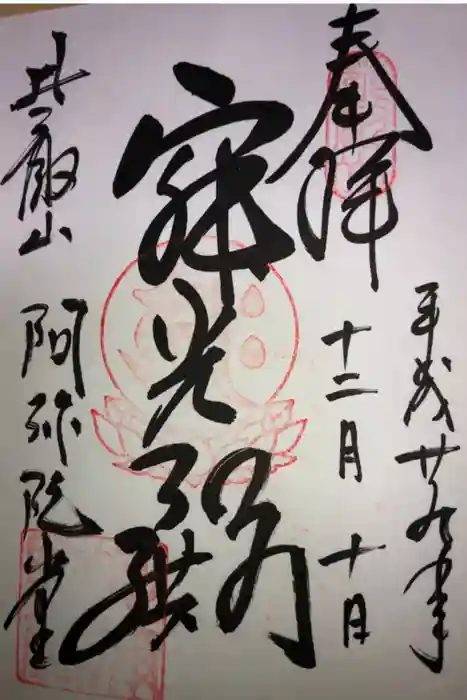 奉拝
平成廿九年
十二月十日
寂光
比叡山 阿弥陀堂